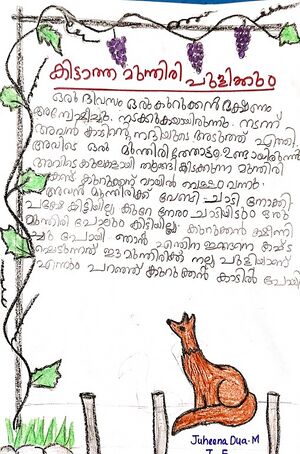 കിടാത്ത മുന്തിരി പുളിക്കും
ഒരു ദിവസം ഒരു കുറുക്കൻ ഭക്ഷണം
അന്വേഷിച്ചു നടക്കുകയായിരുന്നു. നടന്ന്
അവൻ കാട്ടിന്റെ നദിയുടെ അടുത്ത് എത്തി
അവിടെ ഒരു മുന്തിരിത്തോട്ടം ഉണ്ടായിരുന്നു
അവിടെ കുലകളായി തൂങ്ങി കിടക്കുന്ന മുന്തിരി
കണ്ട് കുറുക്കന്റെ വായിൽ വെള്ളം വന്നു.
അവൻ മുന്തിരിക്ക് വേണ്ടി ചാടി നോക്കി
പക്ഷേ കിട്ടിയില്ല കുറേ നേരം ചാടിയിട്ടും ഒരു
മുന്തിരി പോലും കിട്ടിയില്ല. കുറുക്കൻ ക്ഷീണി
ച്ചു പോയി ഞാൻ എന്തിന ഇങ്ങനെ കഷ്ട
പ്പെടുന്നത് ഈ മുന്തിരിക്ക് നല്ല പുളിയാണ്
എന്നും പറഞ്ഞ് കുറുക്കൻ കാട്ടിൽ പോയി
Juheena Dua.M